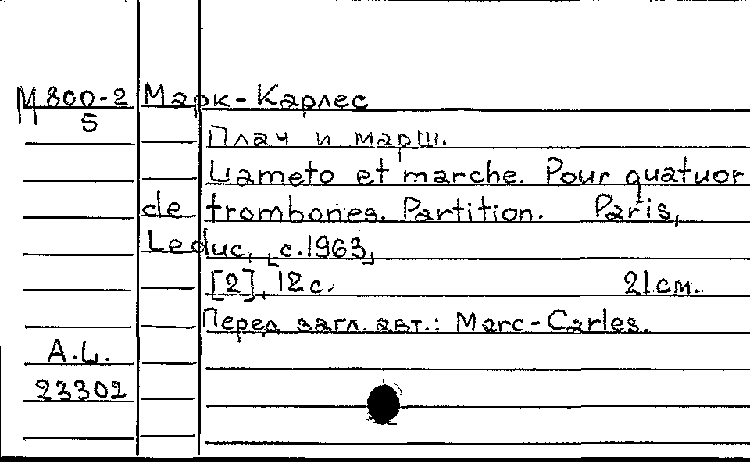 М800-2 Марк-Карлес
5
Плач и марш.
Lameto et marche. Pour quatuor
de trombones. Partition. Paris,
Leduc, [с.1963]
[2], 12 с. 21 см.
Перед загл. авт.: Marc-Carles.
A.L.
23302